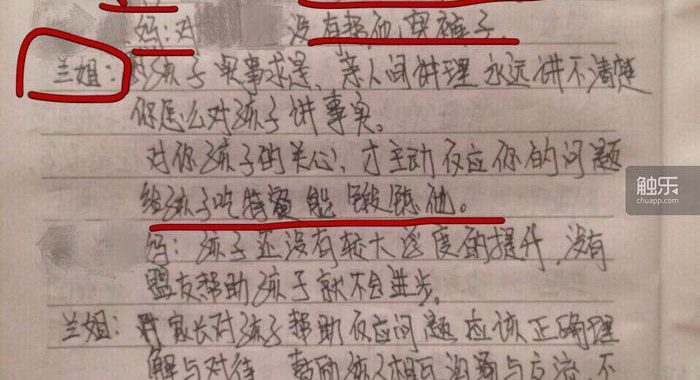 妈:对 没有帮他买裤子.
兰姐: 对孩子实事求是、亲人间讲理永远讲不清楚
你怎么对孩子讲事实。
对你孩子的关心,才主动反应你的问题
给孩子吃特餐能锻炼他。
妈:孩子还没有较大深度的提升,没有
盟友帮助孩子就不会进步。
兰姐: 家长对孩子帮助反应问题应该正确理
解与对待 鼓励 人相互沟通与交流 不
触乐
chuapp.com